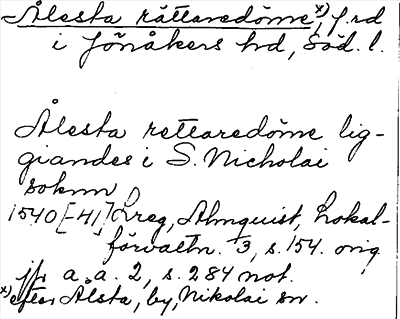 Ålesta rättaredöme x), f.rd
i Jönåkers hd, Söd. l.
Ålesta rettaredöme lig-
giandes i S. Nicholai
soknn
1540[-41], Lreg, Almquist, Lokal-
förvaltn. 3, s. 154. orig.
jfr a.a. 2, s. 284 not.
x) efter Ålsta, by, Nikolai sn.